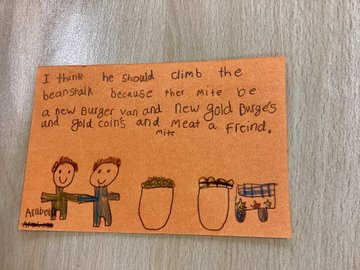 I think he should climb the
beanstalk because ther mite be
a new Burger van and new gold Burges
and gold coins and meat a Freind.
mite
Arabella